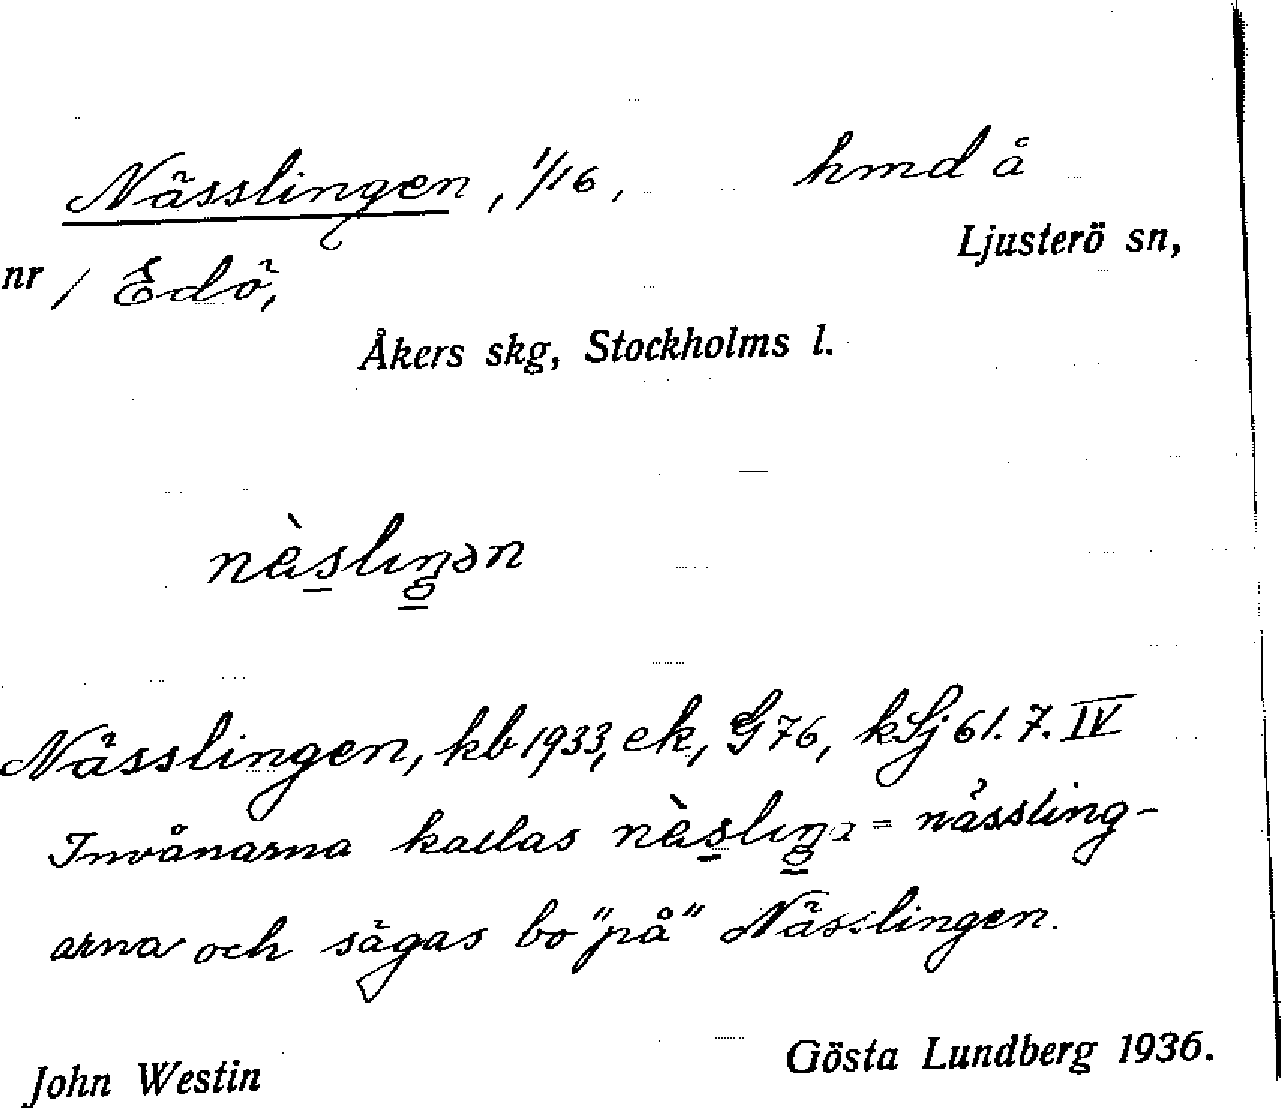 Nässlingen, 1/16, hmd å
Ljusterö sn,
nr / Edö,
Åkers skg, Stockholms l.
nä̀slıŋən
Nässlingen, kb 1933, ek, G 76, kLj 61. 7. IV
Invånarna kallas nä̀slıŋa = nässling-
arna och sägas bo "på" Nässlingen.
John Westin Gösta Lundberg 1936.